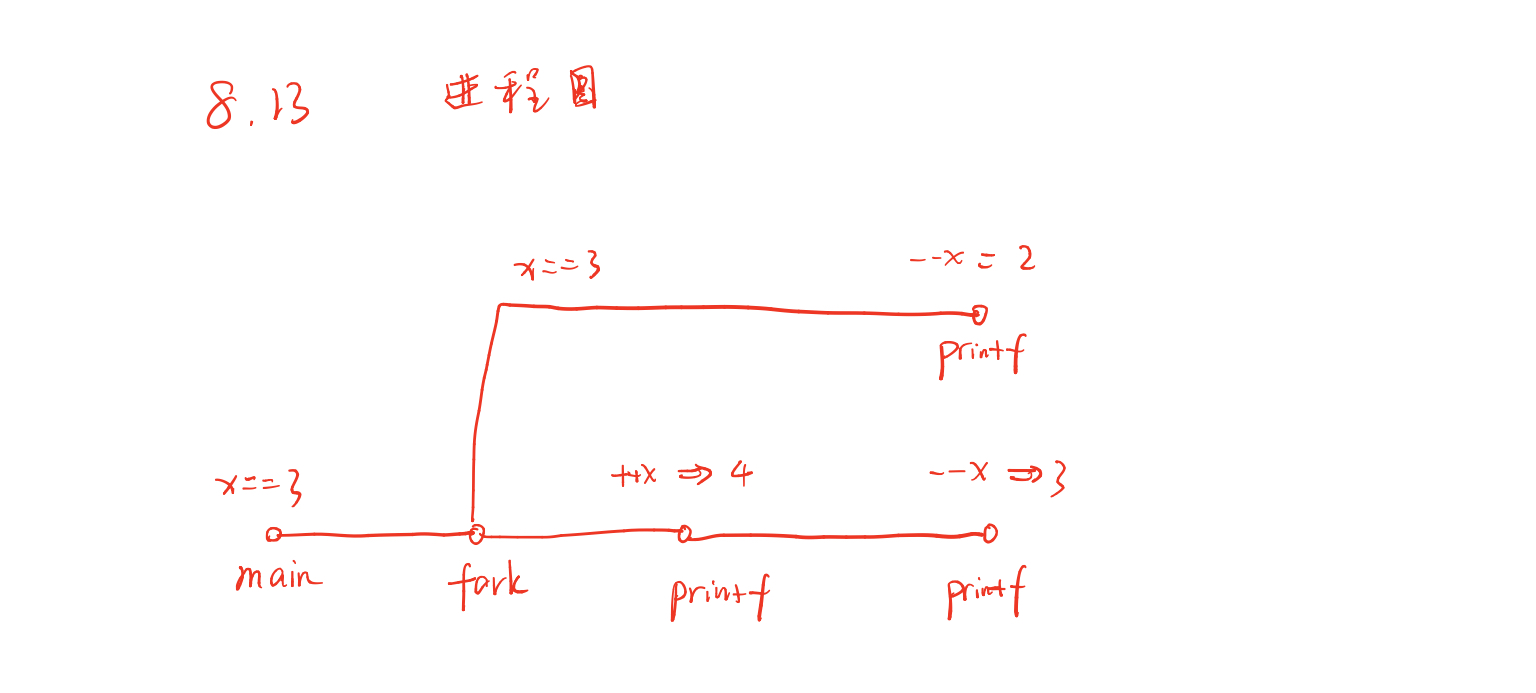 8.13 进程图
x==3 --x = 2
printf
x==3 ++x ⇒ 4 --x ⇒ 3
main fork printf printf